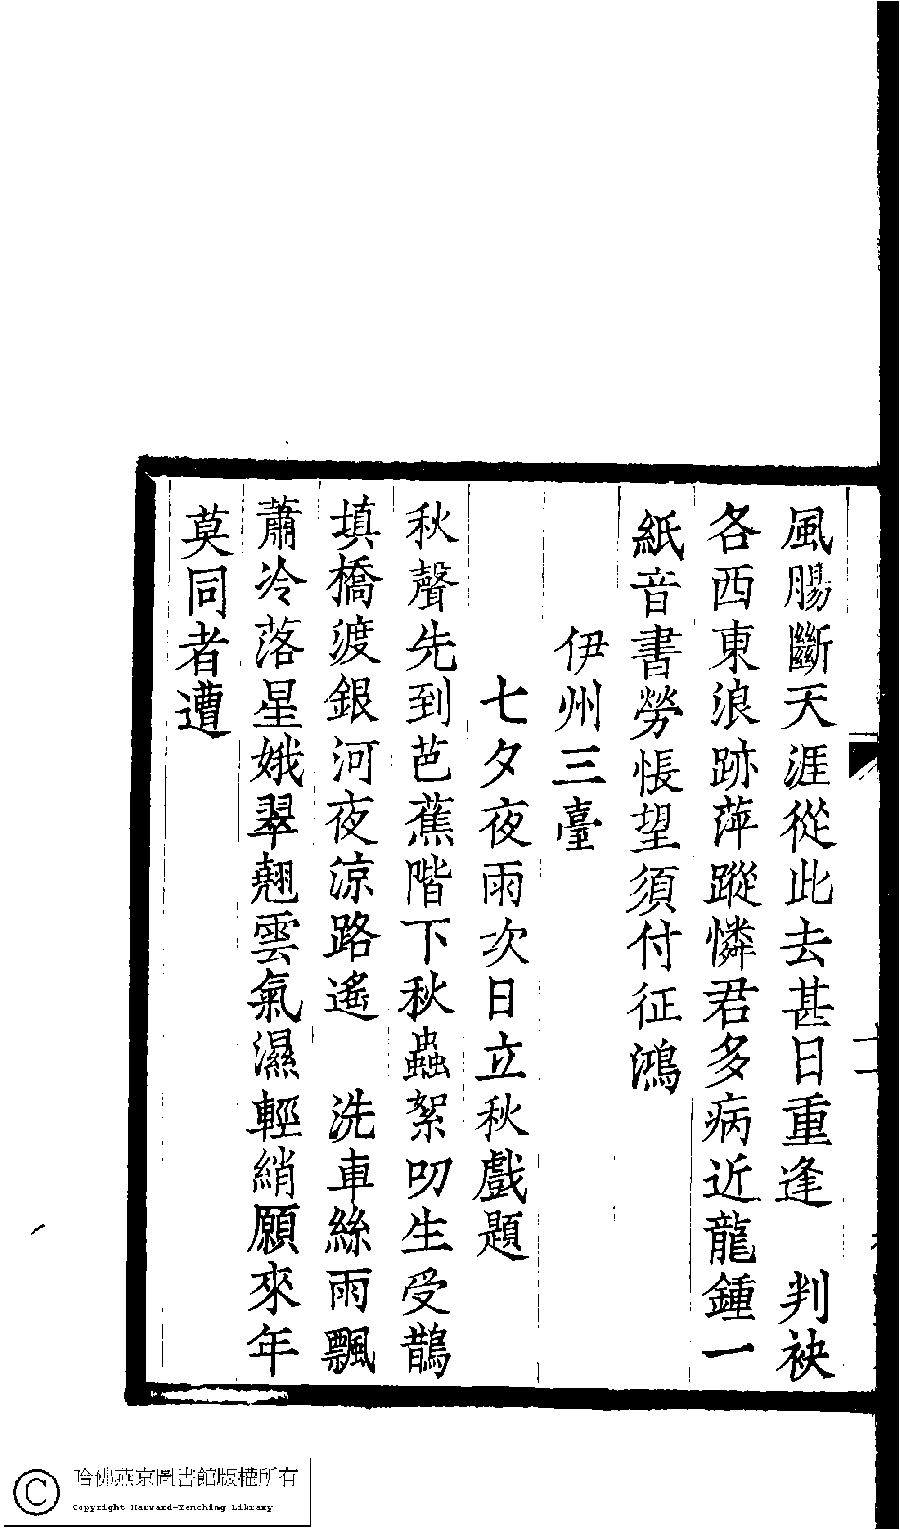 風腸斷天涯從此去甚日重逢　判袂
各西東浪跡萍蹤憐君多病近龍鍾一
紙音書勞悵望須付征鴻
伊州三臺
七夕夜雨次日立秋戲題
秋聲先到芭蕉階下秋蟲絮叨生受鵲
填橋渡銀河夜涼路遙　洗車絲雨飄
蕭冷落星娥翠翹雲氣濕輕綃願來年
莫同者遭
哈佛燕京圖書館版權所有
Copyright Harvard-Yenching Library